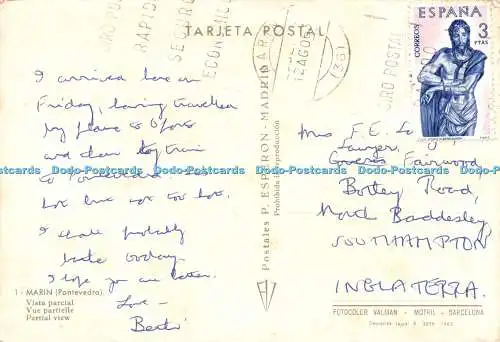 TARJETA POSTAL
ESPAÑA
CORREOS
3
PTAS
GIRO POSTAL
RAPIDO
SEGURO
ECONOMICO
12 AGO 6
GIRO POSTAL
I arrived here on
Friday, having travelled
by plane to
and then by train
to
hot but not too hot.
I shall probably
bathe today.
I hope you are better.
Love –
Mrs F. E.
Fairwood
Botley Road,
North Baddesley,
SOUTHAMPTON
INGLATERRA.
Postales P. ESPERON - MADRID
Prohibida la reproducción
1 - MARIN (Pontevedra)
Vista parcial
Vue partielle
Partial view
FOTOCOLOR VALMAN - MOTRIL - BARCELONA
Dodo-Postcards Dodo-Postcards Dodo-Postcards Dodo-Postcards Dodo-Postcards